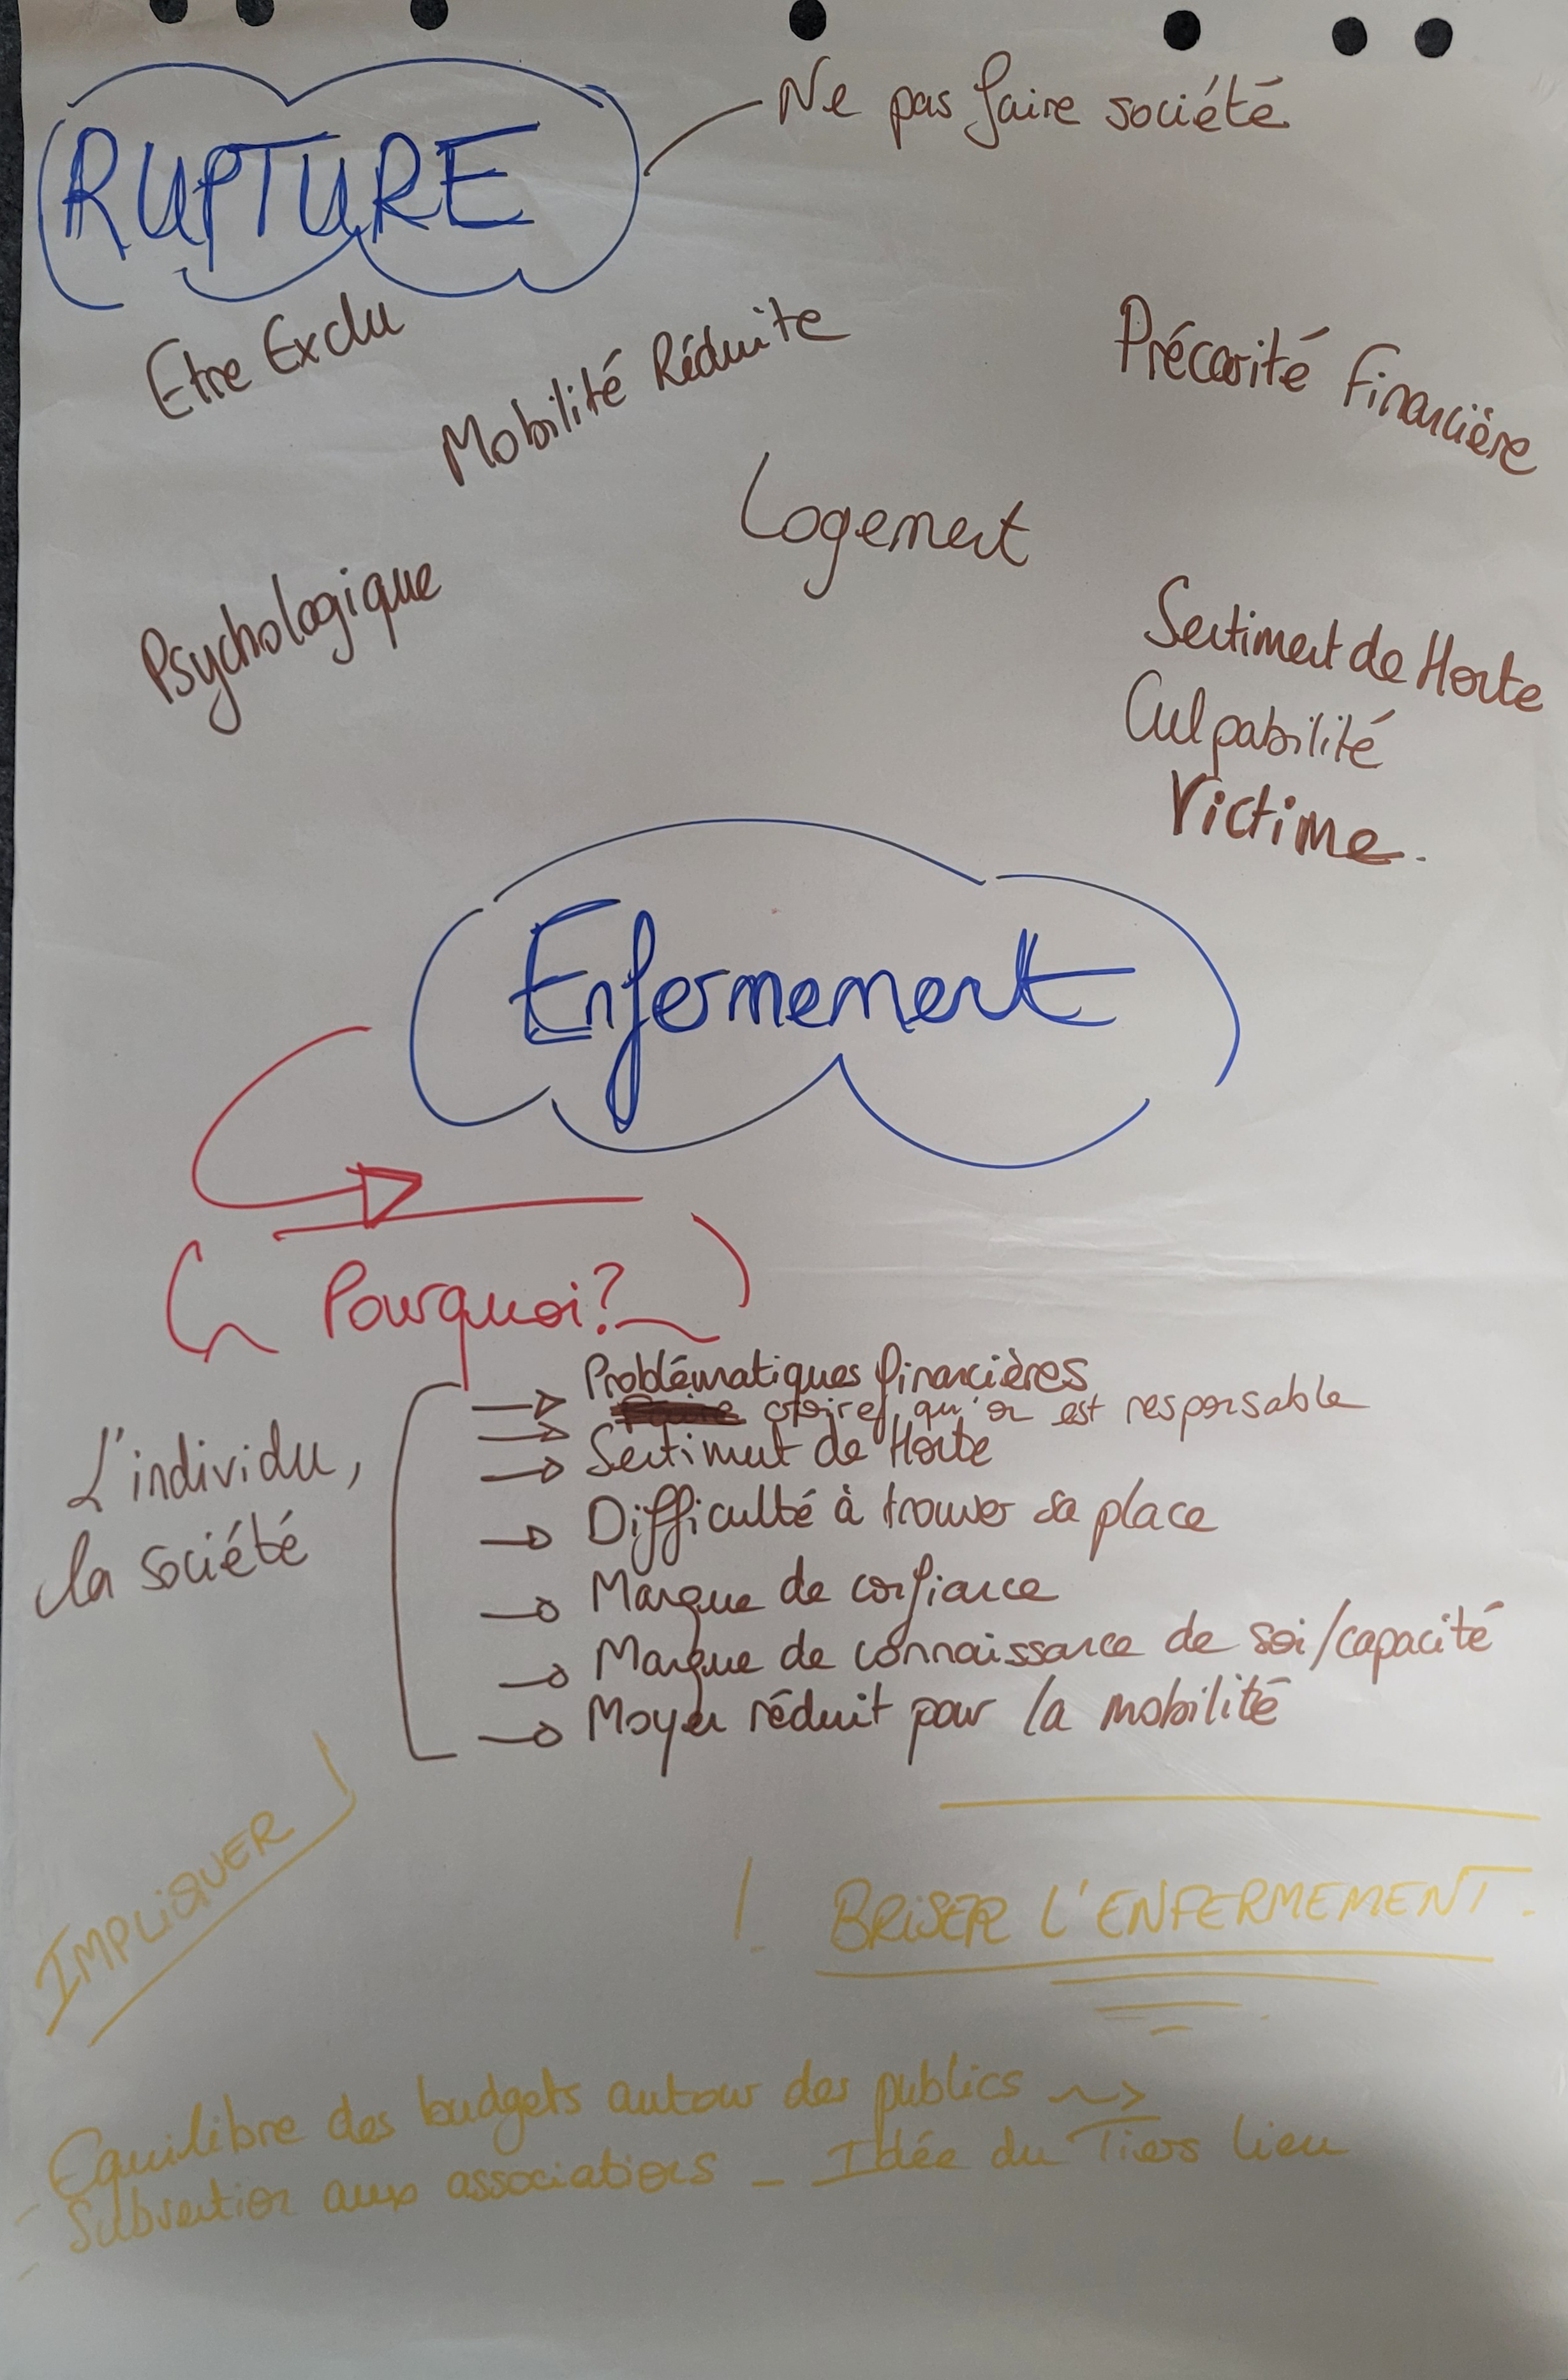 Ne pas faire société
RUPTURE
Etre Exclu
Mobilité Réduite
Précarité Financière
Logement
Psychologique
Sentiment de Honte
Culpabilité
Victime.
Enfermement
Pourquoi?
L'individu,
la société
Problématiques financières
croire qu'on est responsable
Sentiment de Honte
Difficulté à trouver sa place
Manque de confiance
Manque de connaissance de soi/capacité
Moyen réduit pour la mobilité
IMPLIQUER !
! BRISER L'ENFERMEMENT.
- Equilibre des budgets autour des publics
- Subvention aux associations - Idée du Tiers lieu